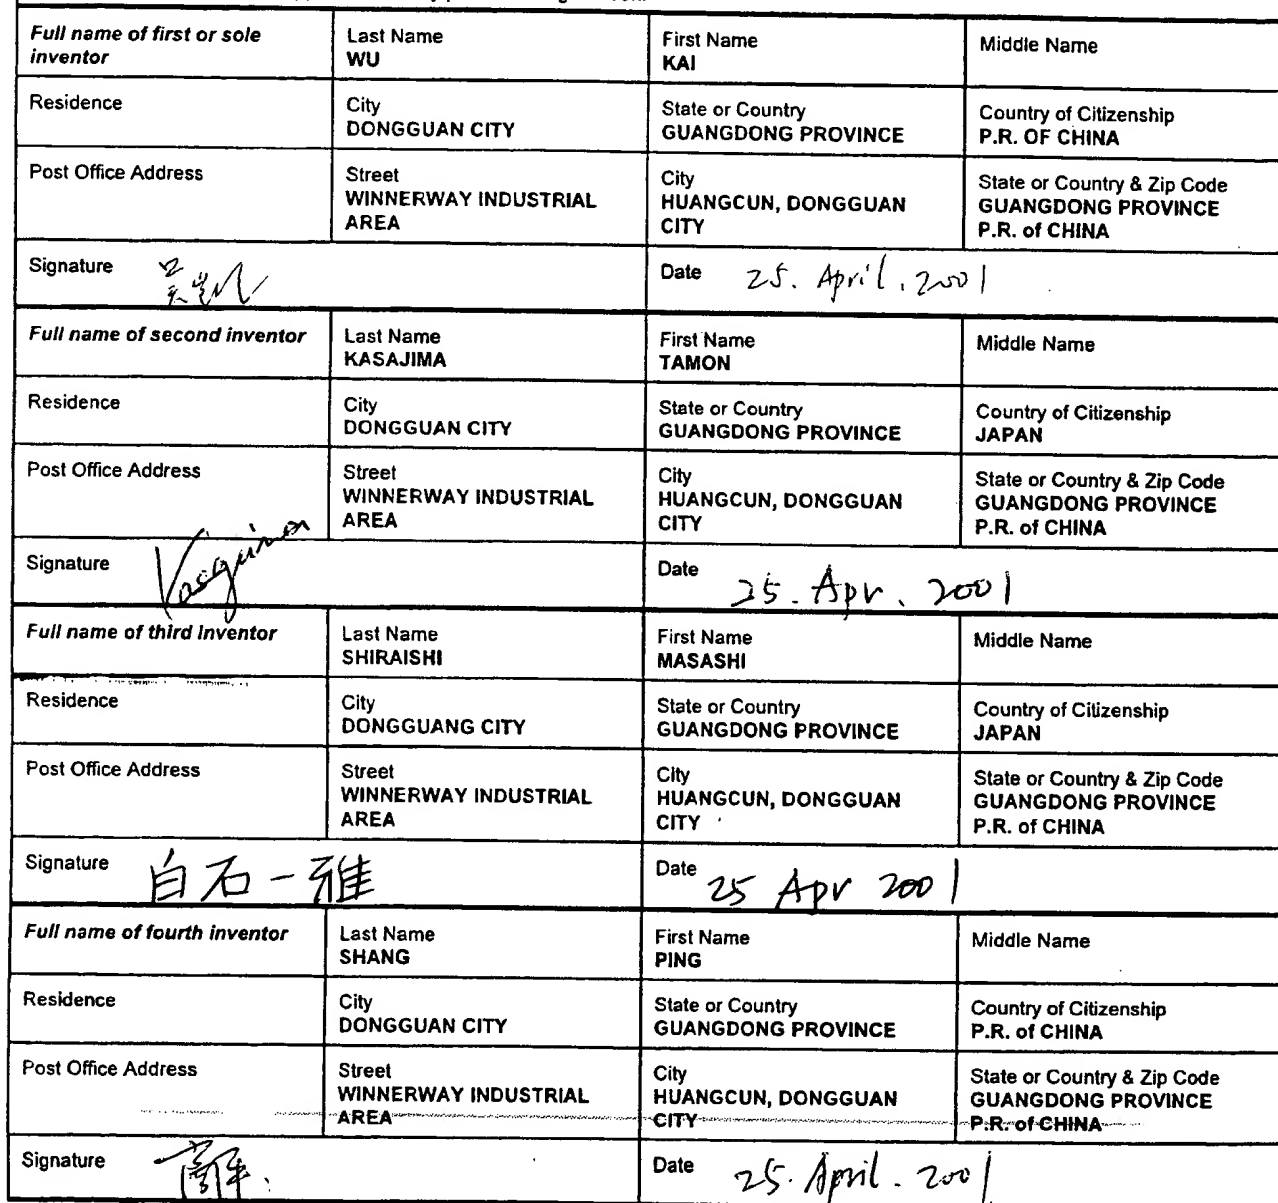 Full name of first or sole inventor
Last Name
WU
First Name
KAI
Middle Name
Residence
City
DONGGUAN CITY
State or Country
GUANGDONG PROVINCE
Country of Citizenship
P.R. OF CHINA
Post Office Address
Street
WINNERWAY INDUSTRIAL
AREA
City
HUANGCUN, DONGGUAN
CITY
State or Country & Zip Code
GUANGDONG PROVINCE
P.R. of CHINA
Signature
Date 25. April. 2001
Full name of second inventor
Last Name
KASAJIMA
First Name
TAMON
Middle Name
Residence
City
DONGGUAN CITY
State or Country
GUANGDONG PROVINCE
Country of Citizenship
JAPAN
Post Office Address
Street
WINNERWAY INDUSTRIAL
AREA
City
HUANGCUN, DONGGUAN
CITY
State or Country & Zip Code
GUANGDONG PROVINCE
P.R. of CHINA
Signature
Date 25. Apr. 2001
Full name of third inventor
Last Name
SHIRAISHI
First Name
MASASHI
Middle Name
Residence
City
DONGGUANG CITY
State or Country
GUANGDONG PROVINCE
Country of Citizenship
JAPAN
Post Office Address
Street
WINNERWAY INDUSTRIAL
AREA
City
HUANGCUN, DONGGUAN
CITY
State or Country & Zip Code
GUANGDONG PROVINCE
P.R. of CHINA
Signature 白石一雅
Date 25 Apr 2001
Full name of fourth inventor
Last Name
SHANG
First Name
PING
Middle Name
Residence
City
DONGGUAN CITY
State or Country
GUANGDONG PROVINCE
Country of Citizenship
P.R. of CHINA
Post Office Address
Street
WINNERWAY INDUSTRIAL
AREA
City
HUANGCUN, DONGGUAN
CITY
State or Country & Zip Code
GUANGDONG PROVINCE
P.R. of CHINA
Signature
Date 25. April. 2001